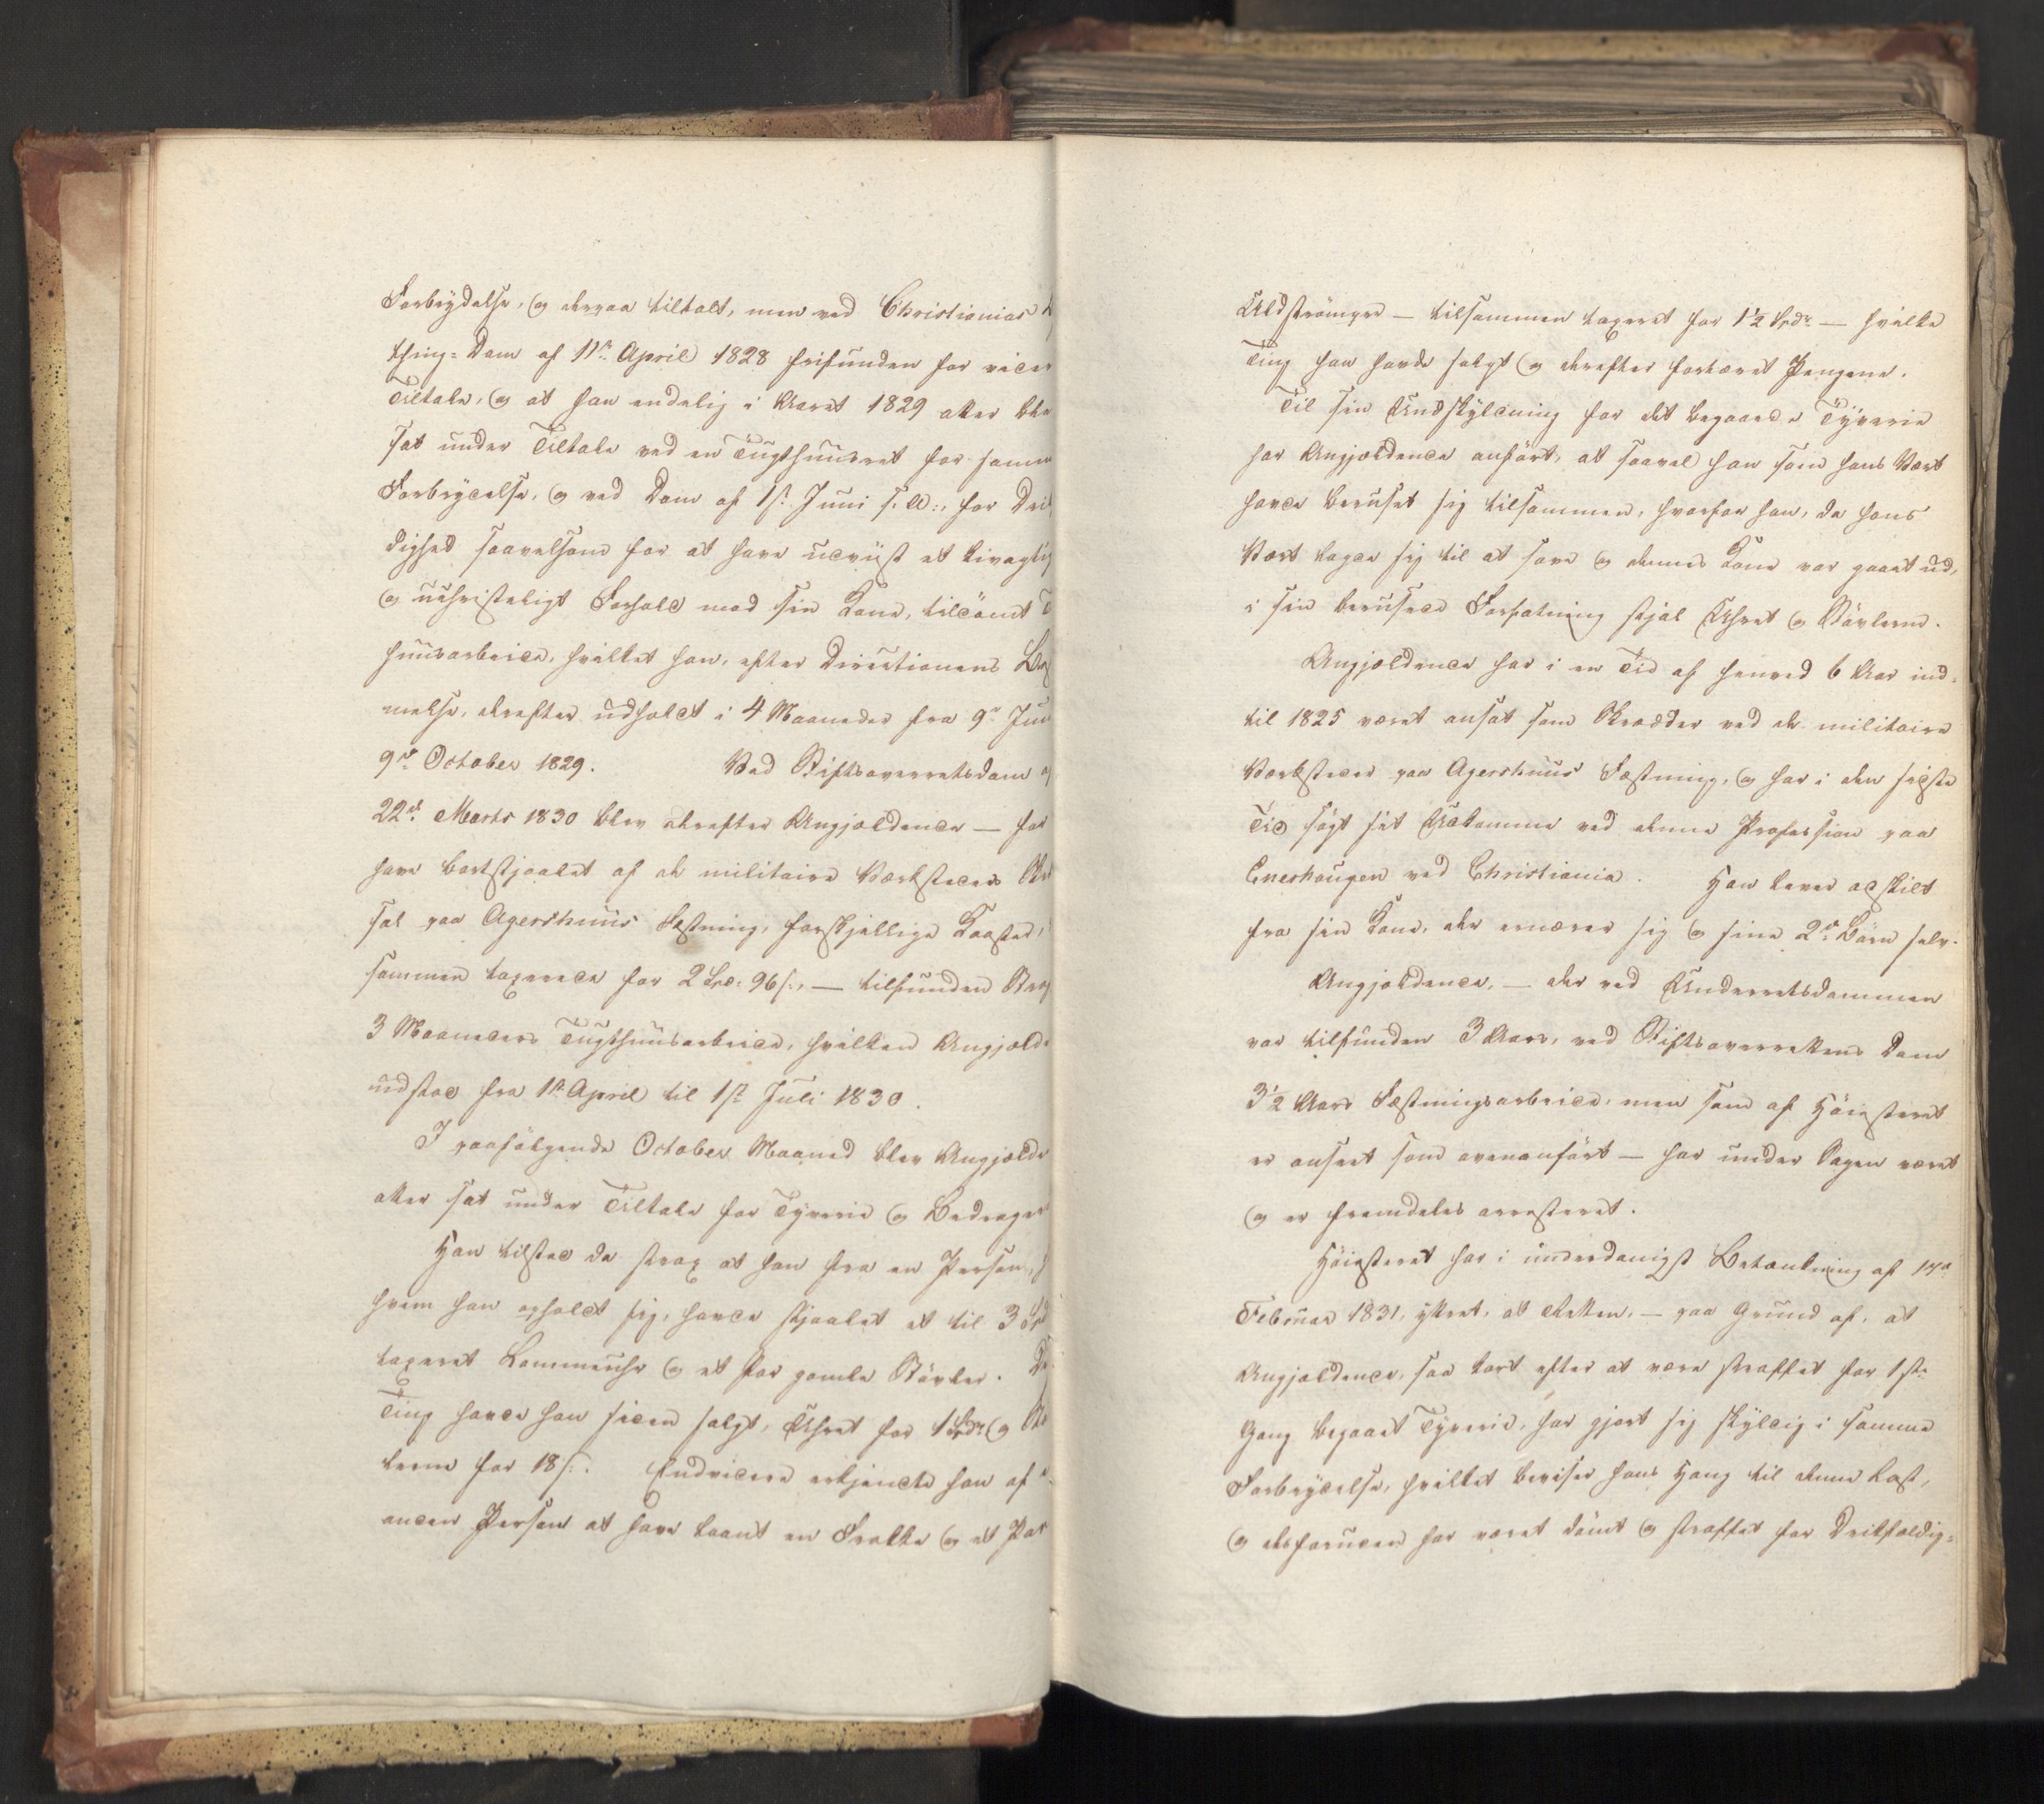 Forbrydelse, og derpaa tiltalt, men ved Christianias
thing-Dom af 11te April 1828 frifunden for vider
Tiltale, og at han endelig i Aaret 1829 atter ble
sat under Tiltale ved en Tugthuusret for samme
Forbrydelse, og ved Dom af 1ste Juni s. A., for Drik
dighed saavelsom for at have udviist et kivagtig
og uchristeligt Forhold mod sin Kone, tildömt T
huusarbeide, hvilket han, efter Directionens Be
melse, derefter udholdt i 4 Maaneder fra 9de Juni
9de October 1829. Ved Stiftsoverretsdom a
22de Marts 1830 blev derefter Angjældende — for
have bortstjaalet af de militaire Værksteders
sal paa Agershuus Fæstning, forskjellige Koster,
sammen taxerede for 2 Spd. 96 s., — tilfunden Straf
3 Maaneders Tugthuusarbeide, hvilken Angjælde
udstod fra 1ste April til 1ste Juli 1830.
I paafölgende October Maaned blev Angjælde
atter sat under Tiltale for Tyverie og Bedrager
Han tilstod da strax at han fra en Person, h
hvem han opholdt sig, havde stjaalet et til 3 Spd
taxeret Lommeuhr og et Par gamle Stövler. Di
Ting havde han siden solgt, Uhret for 1 Spdr og Stö
lerne for 18 s. Endvidere erkjendte han af e
anden Person at have laant en Frakke og et Par
Uldströmper — tilsammen taxeret for 1½ Spdr — hvilke
Ting han havde solgt og derefter fortæret Pengene.
Til sin Undskyldning for det begaaede Tyverie
har Angjældende anfört, at saavel han som hans Vært
havde beruset sig tilsammen, hvorfor han, da hans
Vært lagde sig til at sove og dennes Kone var gaaet ud,
i sin berusede Forfatning stjal Uhret og Stövlerne.
Angjældende har i en Tid af henved 6 Aar ind-
til 1825 været ansat som Skrædder ved de militaire
Værksteder paa Agershuus Fæstning, og har i den sidste
Tid sögt sit Udkomme ved denne Profession paa
Enerhougen ved Christiania. Han lever adskilt
fra sin Kone, der ernærer sig og sine 2de Börn selv.
Angjældende, — der ved Underretsdommen
var tilfunden 3 Aars, ved Stiftsoverrettens Dom
3½ Aars Fæstningsarbeide, men som af Höiesteret
er anseet som ovenanfört — har under Sagen været
og er fremdeles arresteret.
Höiesteret har i underdanigst Betænkning af 17de
Februar 1831, yttret, at Retten, — paa Grund af, at
Angjældende, saa kort efter at være straffet for 1ste
Gang begaaet Tyverie, har gjort sig skyldig i samme
Forbrydelse, hvilket beviser hans Hang til denne Last,
og desforuden har været dömt og straffet for Drikfældig-